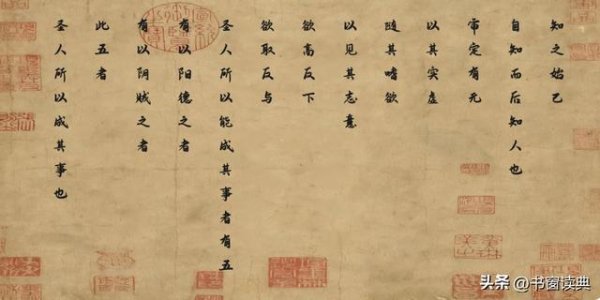 知之始己
自知而后知人也
审定有无
以其实虚
随其嗜欲
以见其志意
欲高反下
欲取反与
圣人所以能成其事者有五
有以阳德之者
有以阴贼之者
此五者
圣人所以成其事也
头条 @书窗读典